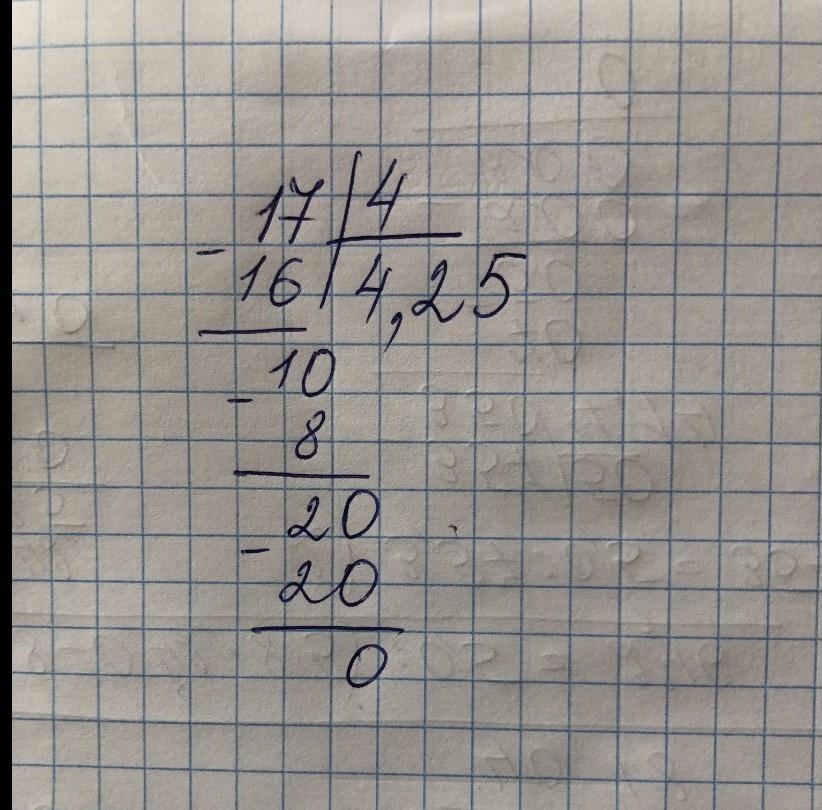 17 4
- 16 4,25
10
- 8
20
- 20
0